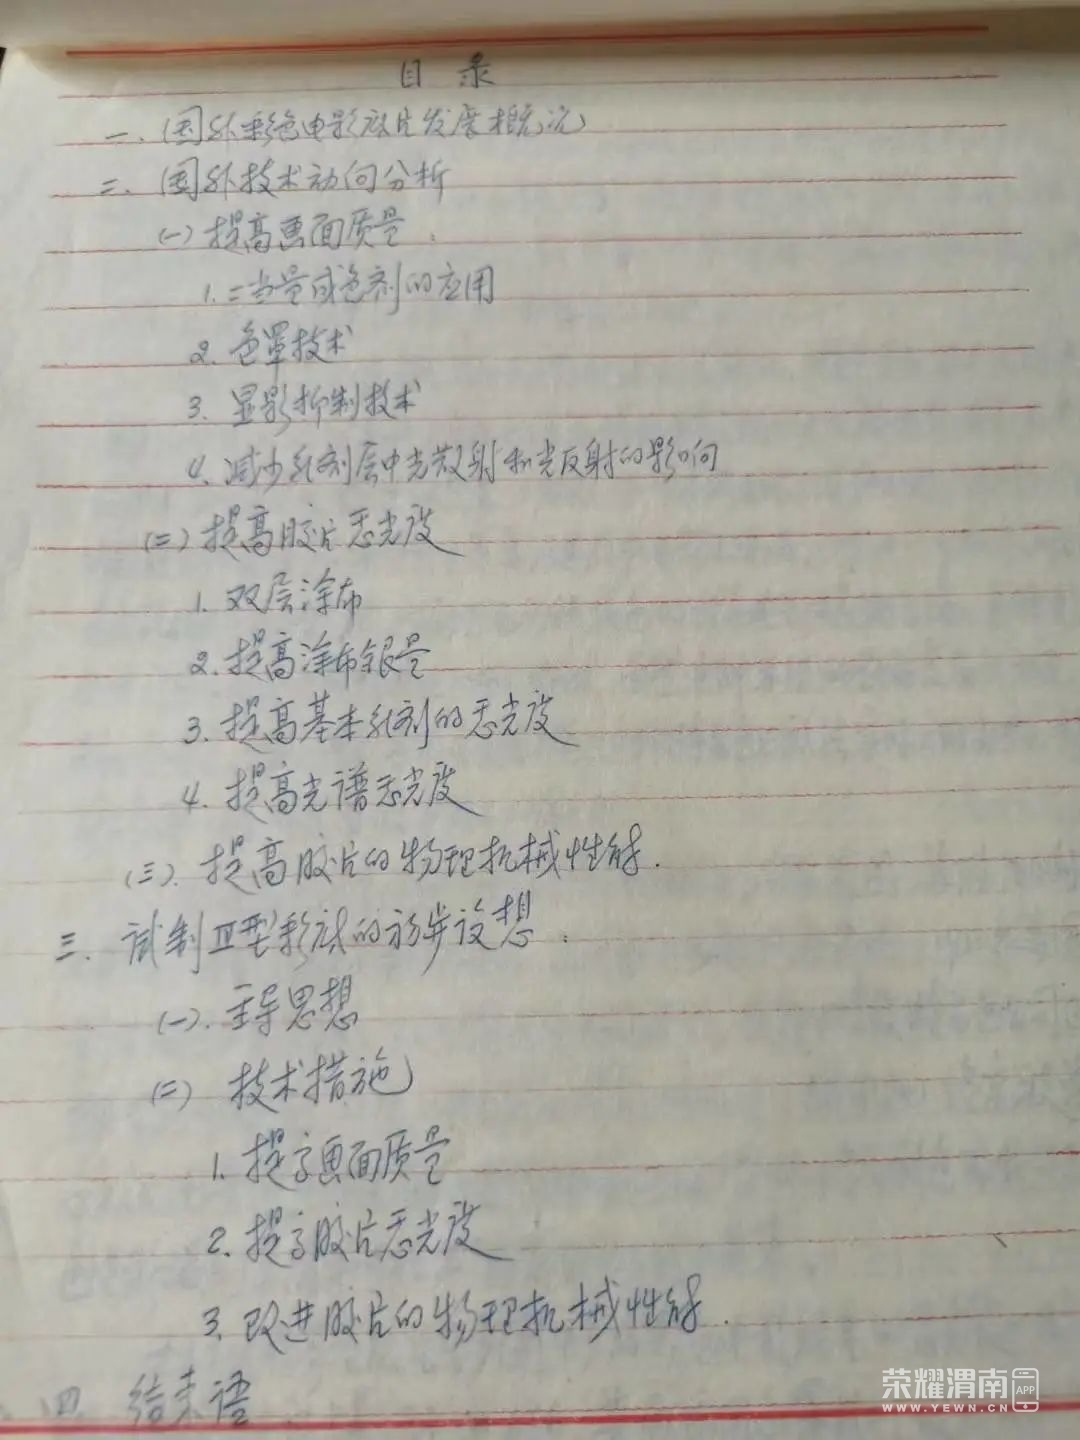 目录
一、国外彩色电影底片发展概况
二、国外技术动向分析
(一)提高画面质量.
1.二当量成色剂的应用
2.色罩技术
3.显影抑制技术
4.减少乳剂层中光散射和光反射的影响
(二)提高胶片感光度
1.双层涂布
2.提高涂布银量
3.提高基本乳剂的感光度
4.提高光谱感光度
(三).提高胶片的物理机械性能.
三.试制Ⅲ型彩底的初步设想:
(一).主导思想
(二)技术措施
1.提高画面质量
2.提高胶片感光度
3.改进胶片的物理机械性能.
四.结束语
荣耀渭南APP
WWW.YEWN.CN